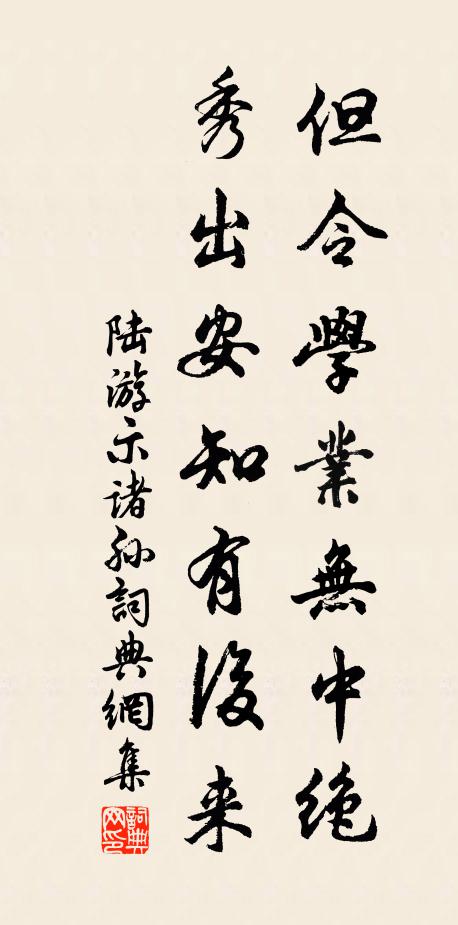 但令學業無中絶
秀出安知有後来
陆游示諸孙詞典網集
詞典网印